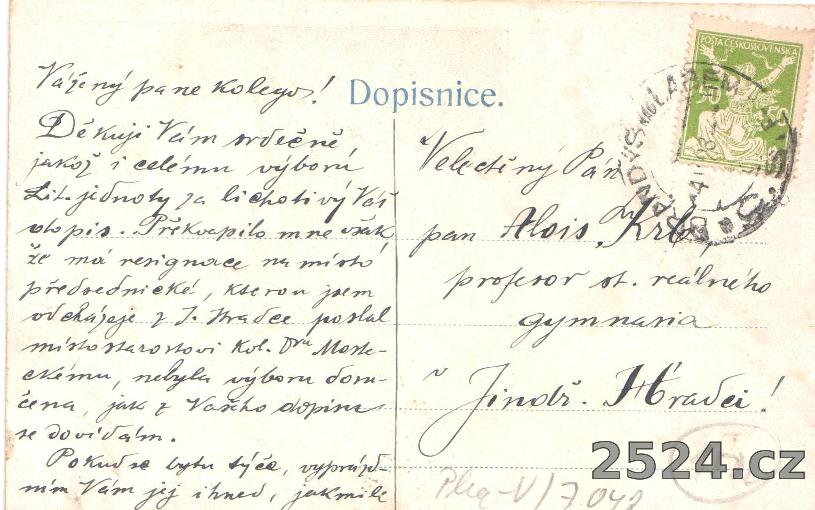 Vážený pane kolego!
Děkuji Vám srdečně
jakož i celému výboru
Lit. jednoty za lichotivý Váš
dopis. Překvapilo mne však,
že má resignace na místo
předsednické, kterou jsem
odcházeje z J. Hradce poslal
místostarostovi kol. Dru Moste-
ckému, nebyla výboru doru-
čena, jak z Vašeho dopisu
se dovídám.
Pokud se bytu týče, vyprázd-
ním Vám jej ihned, jakmile
Dopisnice.
Velectěný Pán
pan Alois Krb,
profesor st. reálného
gymnasia
v
Jindř. Hradci!
POŠTA ČESKOSLOVENSKÁ
50 50
BRANDÝS NAD LABEM
2524.cz